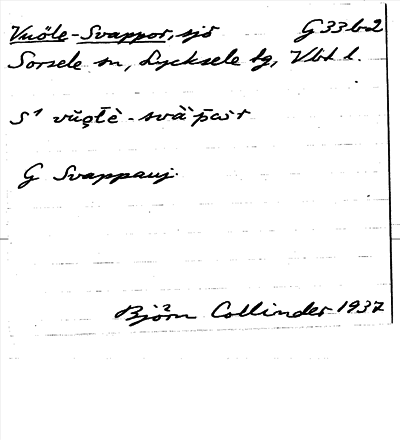 Vuöle-Svappor, sjö G33b2
Sorsele sn, Lycksele lg, Vbt l.
G Svappauj.
Björn Collinder 1937